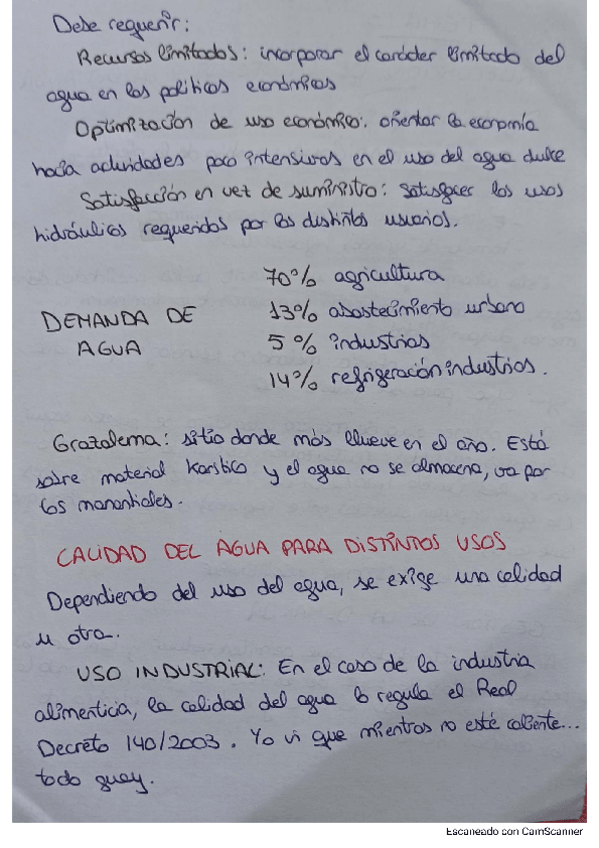 Debe requerir:
Recursos limitados: incorporar el carácter limitado del
agua en las políticas económicas
Optimización de uso económico: orientar la economía
hacia actividades poco intensivas en el uso del agua dulce
Satisfacción en vez de suministro: satisfacer los usos
hidráulicos requeridos por los distintos usuarios.
DEMANDA DE
AGUA
70% agricultura
13% abastecimiento urbano
5% industrias
14% refrigeración industrias.
Grazalema: sitio donde más llueve en el año. Está
sobre material karstico y el agua no se almacena, va por
los manantiales.
CALIDAD DEL AGUA PARA DISTINTOS USOS
Dependiendo del uso del agua, se exige una calidad
u otra.
USO INDUSTRIAL: En el caso de la industria
alimenticia, la calidad del agua la regula el Real
Decreto 140/2003. Yo vi que mientras no esté caliente...
todo guay.
Escaneado con CamScanner